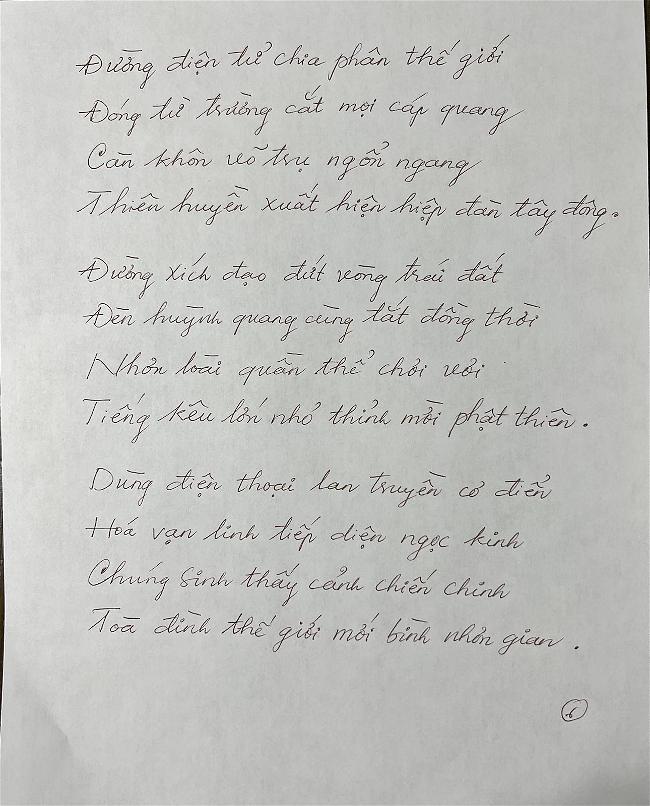 Đường điện tử chia phân thế giới
Đóng từ trường cắt mọi cáp quang
Càn khôn vỡ trụ ngổn ngang
Thiên huyền xuất hiện hiệp đàn tây đông.
Đường xích đạo đứt vòng trái đất
Đèn huỳnh quang cùng tắt đồng thời
Nhơn loài quần thể chơi vơi
Tiếng kêu lớn nhỏ thỉnh mời phật thiên.
Dùng điện thoại lan truyền cơ điển
Hoá vạn linh tiếp diện ngọc kinh
Chúng sinh thấy cảnh chiến chinh
Toà đình thế giới mới bình nhơn gian.
6